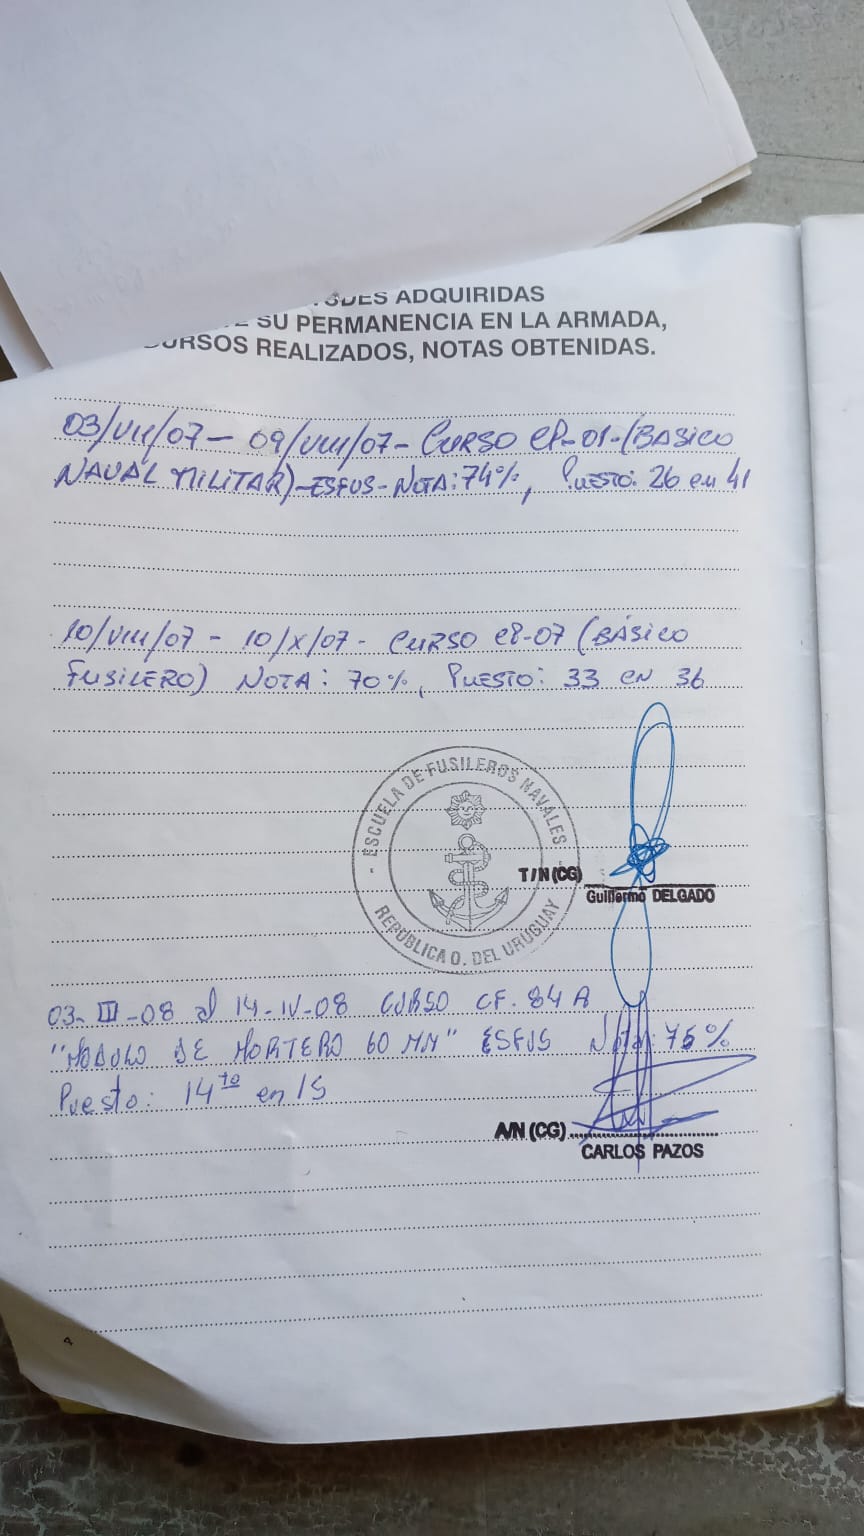 ADQUIRIDAS
SU PERMANENCIA EN LA ARMADA,
CURSOS REALIZADOS, NOTAS OBTENIDAS.
03/VII/07 - 09/VIII/07 - CURSO CP-01-(BASICO
NAVAL MILITAR)-ESFUS-NOTA:74%, PUESTO: 26 en 41
10/VIII/07 - 10/X/07 - CURSO CP-07 (BÁSICO
FUSILERO) NOTA: 70%, PUESTO: 33 EN 36
- ESCUELA DE FUSILEROS NAVALES -
REPÚBLICA O. DEL URUGUAY
T/N (CG)
Guillermo DELGADO
03-III-08 al 14-IV-08 CURSO CF. 84 A
"MODULO DE MORTERO 60 MM" ESFUS Nota: 75%
Puesto: 14to en 15
A/N (CG)
CARLOS PAZOS
4